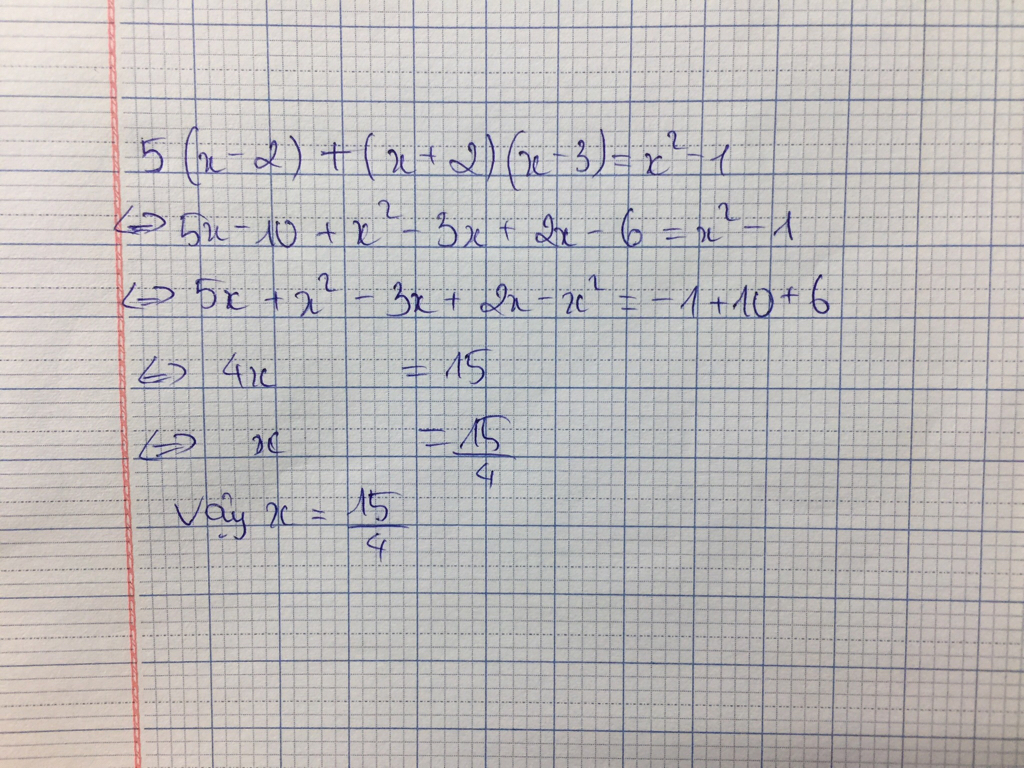 5 (x - 2) + (x + 2) (x - 3) = x² - 1
⇔ 5x - 10 + x² - 3x + 2x - 6 = x² - 1
⇔ 5x + x² - 3x + 2x - x² = -1 + 10 + 6
⇔ 4x = 15
⇔ x = 15/4
Vậy x = 15/4